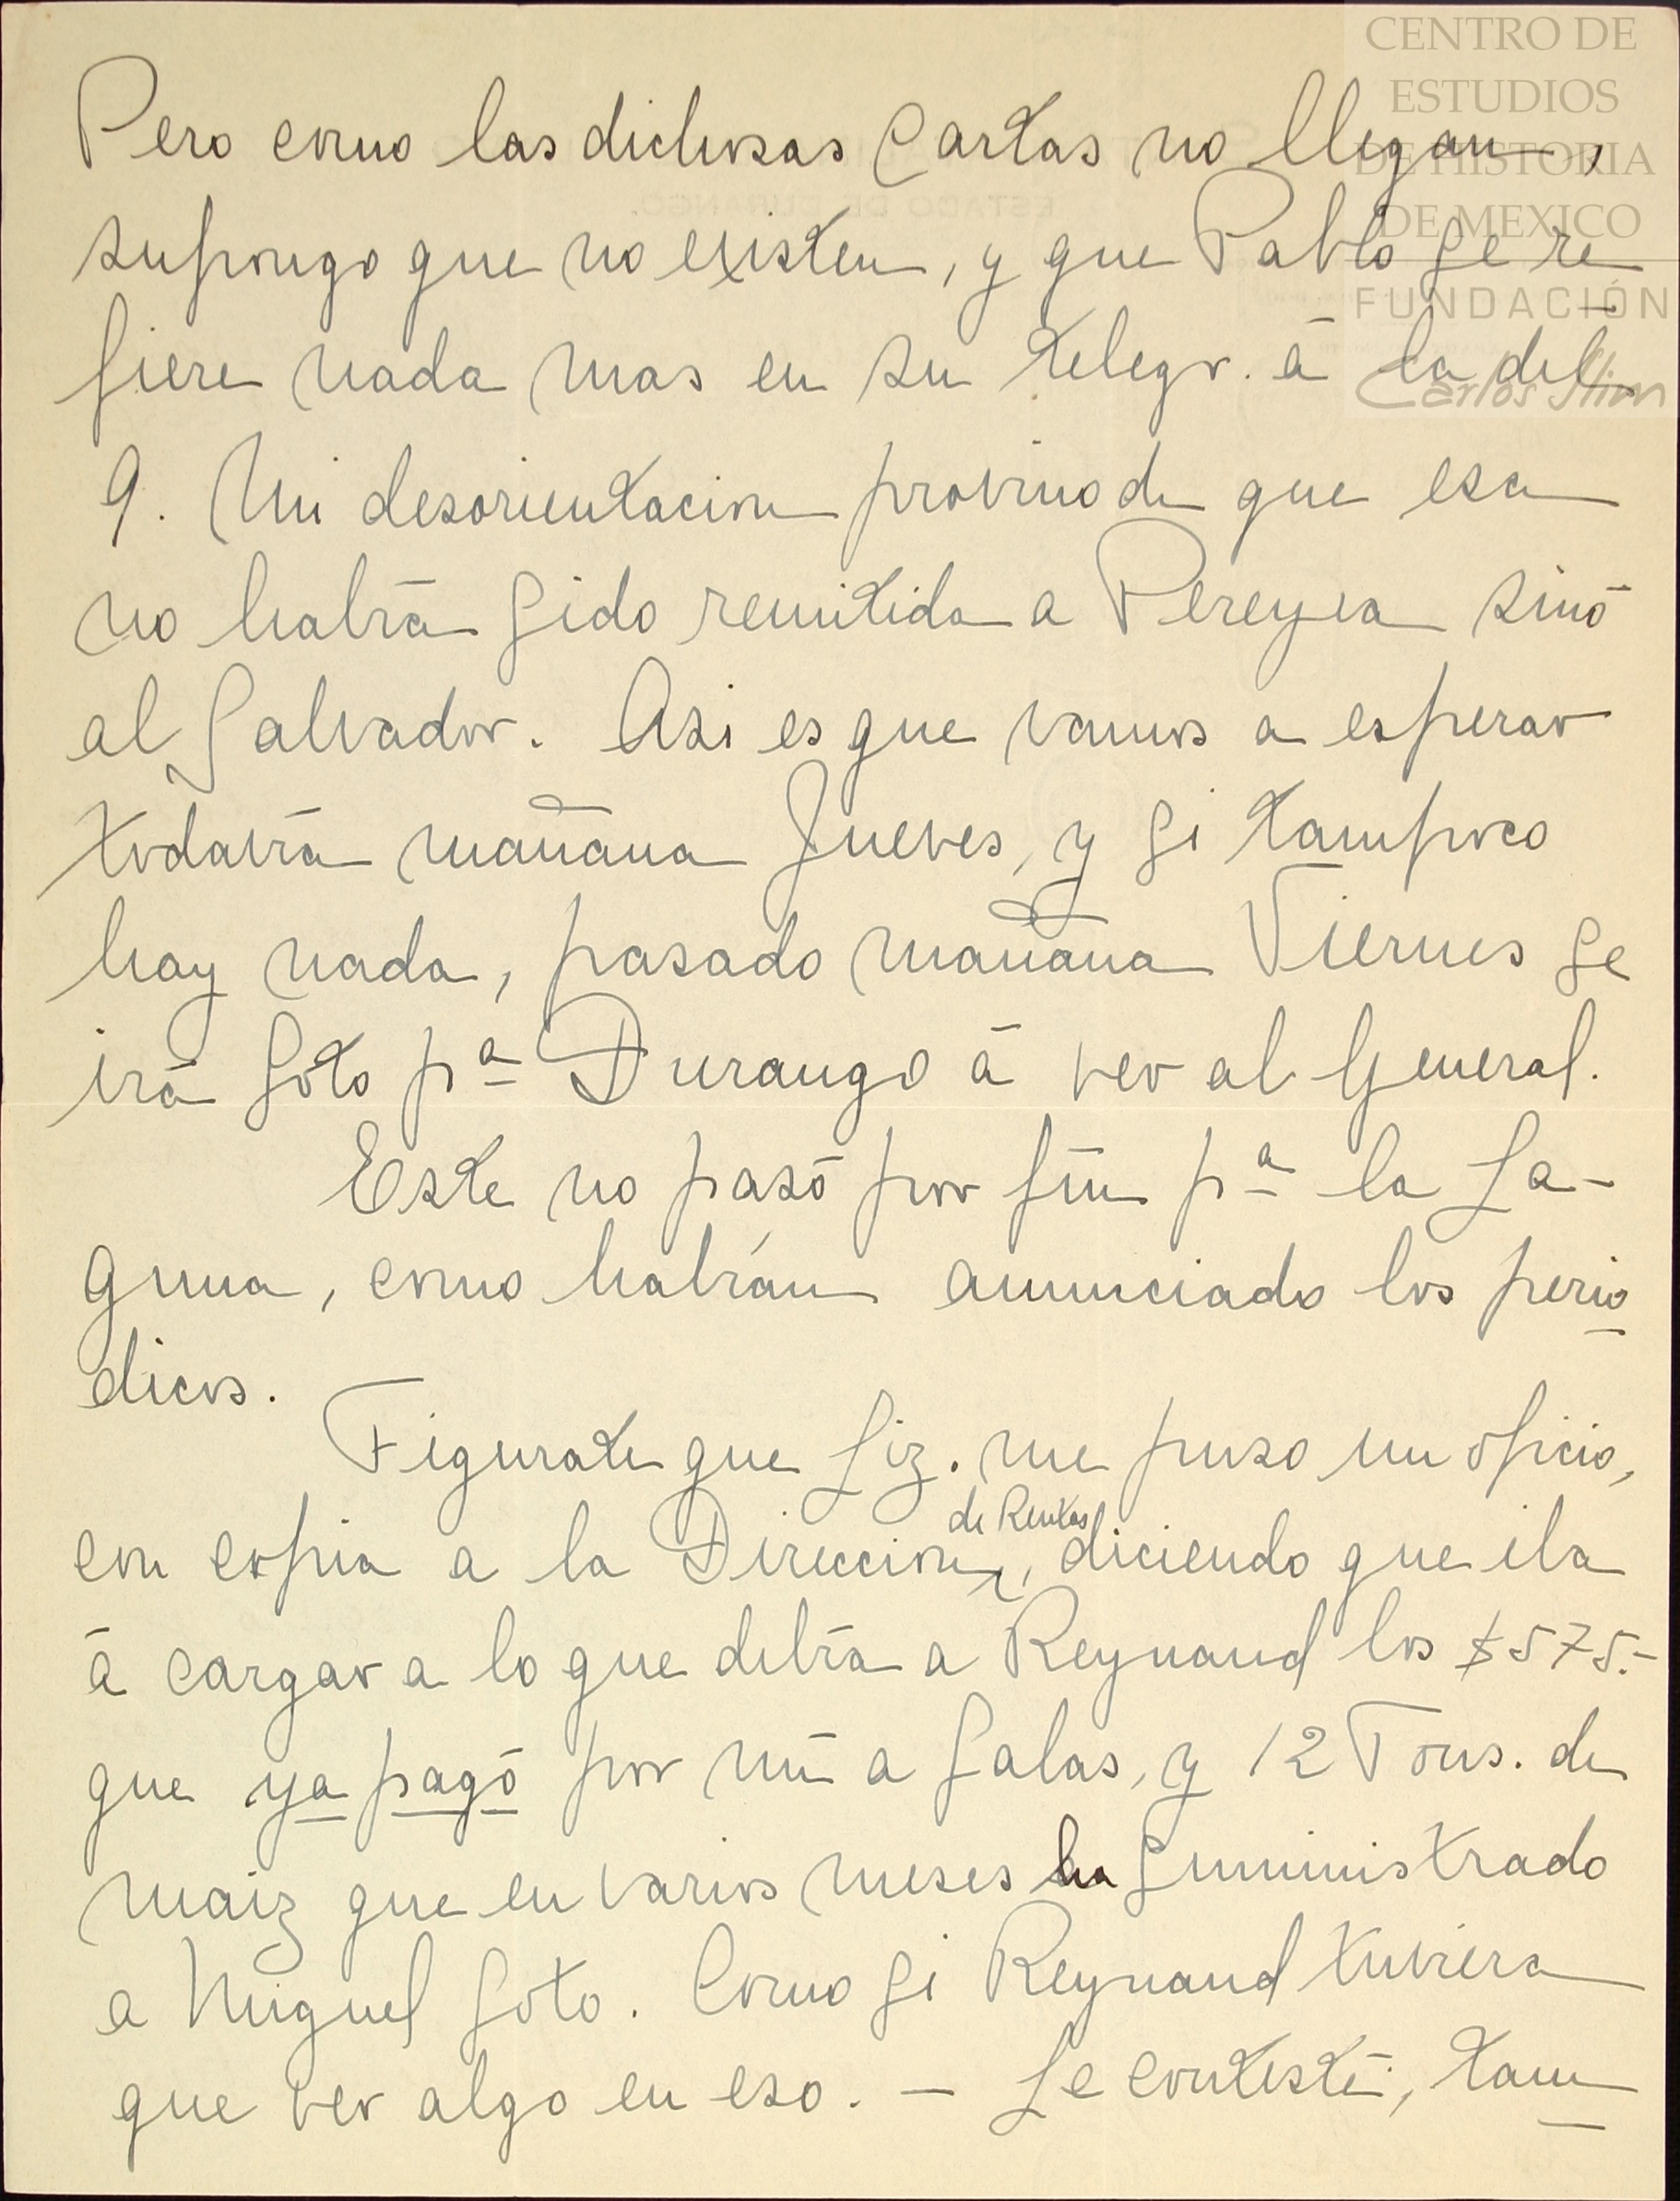 CENTRO DE
ESTUDIOS
DE HISTORIA
DE MEXICO
FUNDACIÓN
Carlos Slim
Pero como las dichosas Cartas no llegan,
supongo que no existen, y que Pablo se re
fiere nada mas en su telegr. á la del
9. Mi desorientacion provino de que esa
no habia sido remitida a Pereyra sinó
al Salvador. Asi es que vamos a esperar
todavía mañana Jueves, y si tampoco
hay nada, pasado mañana Viernes se
irá Soto pª Durango á ver al General.
Este no pasó por fin pª la La-
guna, como habían anunciado los perio
dicos.
Figurate que Liz. me puso un oficio,
con copia a la Direccion de Rentas, diciendo que iba
á cargar a lo que debía a Reynaud los $575.-
que ya pagó por mí a Salas, y 12 Tons. de
maiz que en varios meses ha suministrado
a Miguel Soto. Como si Reynaud tuviera
que ver algo en eso. — Le contesté, tam